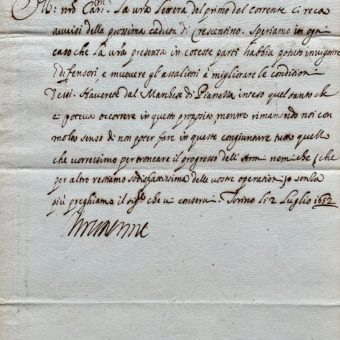 M: nro Car.mo La vra lettera del primo del corrente ci reca
avvisi della prossima caduta di Crescentino. Speriamo in ogni
caso che la vra presenza in coteste parti habbia potuto invigorire
i difensori, e muovere gli assalitori à migliorare le conditioni
Haverete dal Marchese di Pianezza inteso quel tanto che
ci poteva occorrere in questo proposito, mentre rimanendo noi con
molto senso di non poter fare in queste congiunture tutto quello
che vorressimo per troncare il progresso dell'Arm nemiche
per altro restiamo sodisfattissima delle vostre operationi senza
più preghiamo il Sigre che vi conservi. Torino li 2 Luglio 1652